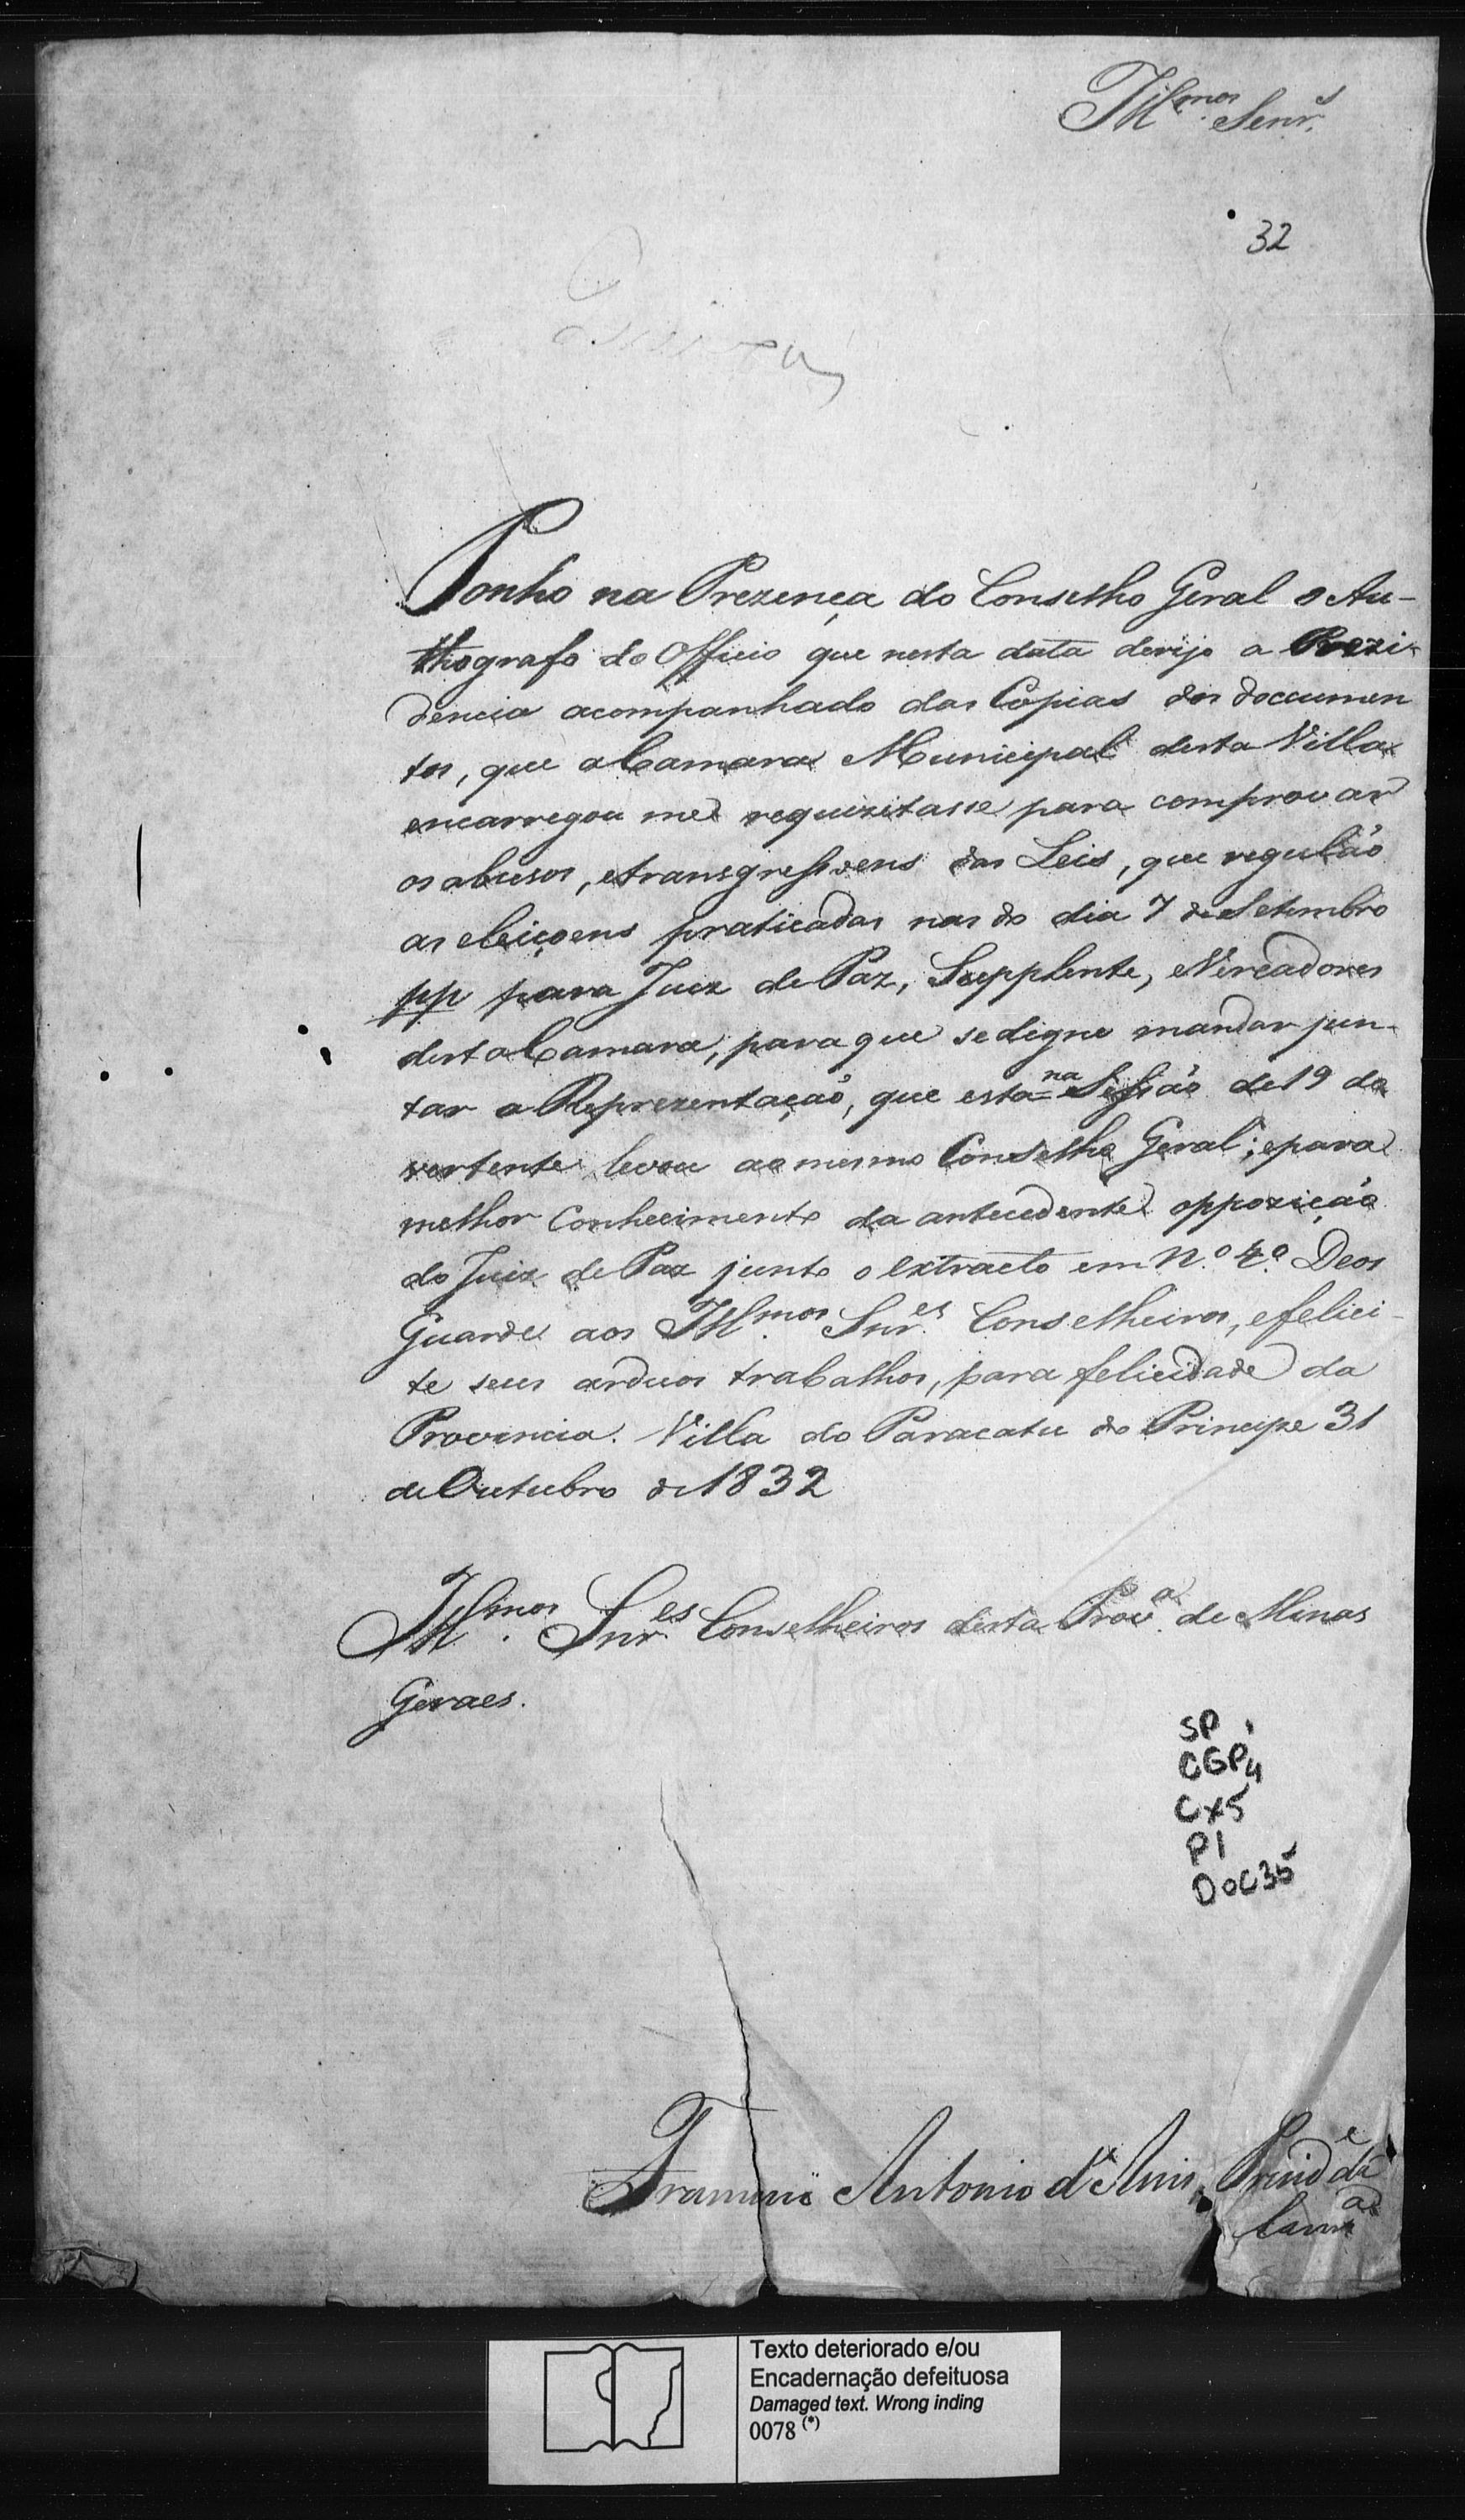 Ill.mos Senr.s
32
Ponho na Prezença do Conselho Geral o Au-
thografo do Officio que nesta data derijo a Prezi-
dencia acompanhado das Copias dos documen
tos, que a Camara Municipal desta Villa
encarregou me requizitasse para comprovar
os abusos, e transgressoens das Leis, que regulão
as eleiçoens praticadas nas do dia 7 de Setembro
pp para Juiz de Paz, Supplente, e Vereadores
desta Camara, para que se digne mandar jun-
tar a Reprezentação, que esta = na Sessão de 19 do
vertente levou ao mesmo Conselho Geral; e para
melhor Conhecimento da antecedente oppozição
do Juiz de Paz junto o extracto em N.o 4.o Deos
Guarde aos Ill.mos Snr.es Conselheiros, e felici-
te seus arduos trabalhos, para felicidade da
Provincia. Villa do Paracatu do Principe 31
de Outubro de 1832
Ill.mos Snr.es Conselheiros desta Prov.a de Minas
Geraes.
SP
CGP4
CX5
P1
DOC35
Antonio d'
Cam.a
Texto deteriorado e/ou
Encadernação defeituosa
Damaged text. Wrong inding
0078 (*)